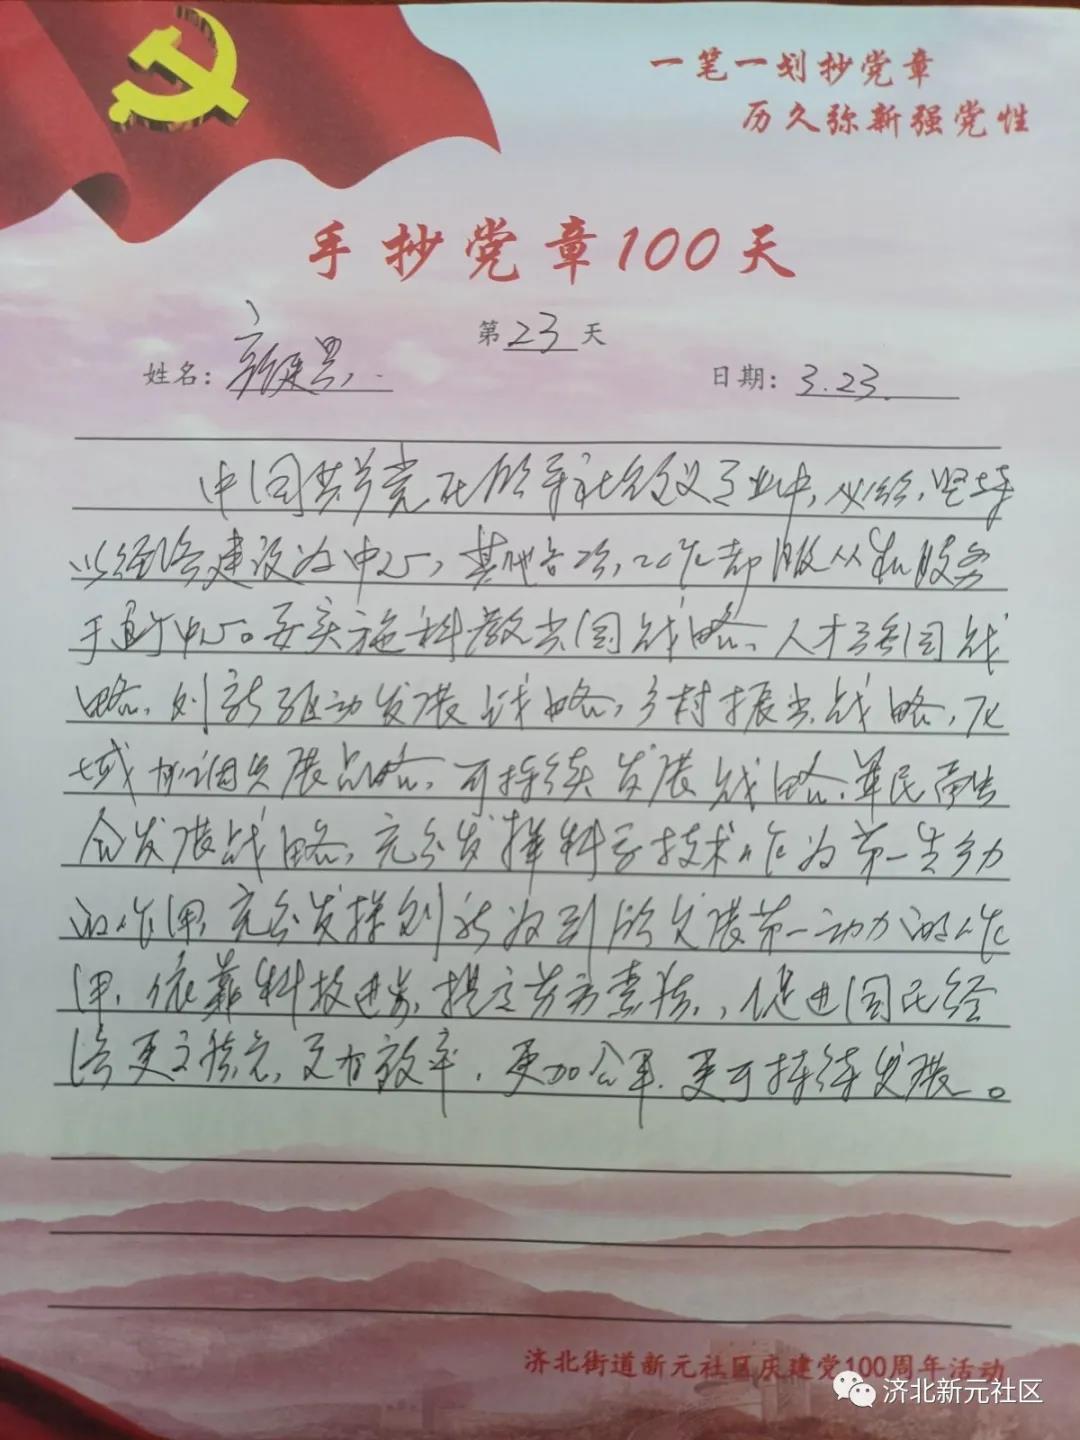 一笔一划抄党章
历久弥新强党性
手抄党章100天
第23天
姓名：
日期：3.23.
中国共产党在领导社会主义事业中，必须坚持
以经济建设为中心，其他各项工作都服从和服务
于这个中心。要实施科教兴国战略、人才强国战
略、创新驱动发展战略，乡村振兴战略，区
域协调发展战略，可持续发展战略，军民融
合发展战略，充分发挥科学技术作为第一生产力
的作用，充分发挥创新为引领发展第一动力的作
用，依靠科技进步，提高劳动者素质，促进国民经
济更高质量，更有效率，更加公平，更可持续发展。
济北街道新元社区庆建党100周年活动
济北新元社区